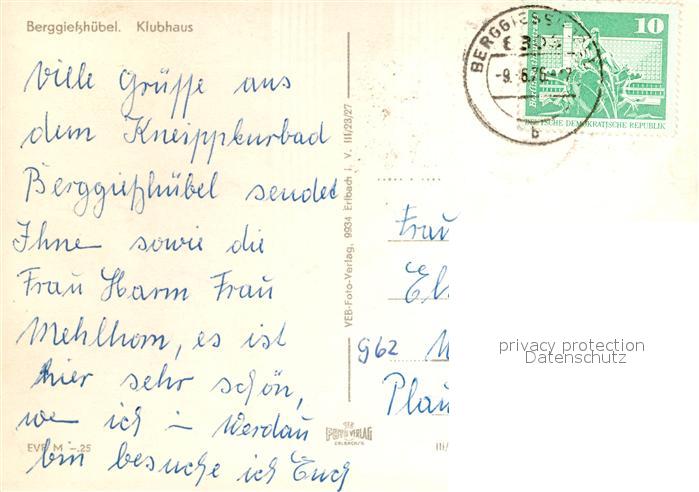 Berggießhübel. Klubhaus
Viele Grüße aus
dem Kneippkurbad
Berggießhübel sendet
Ihnen sowie die
Frau Harm Frau
Mehlhorn, es ist
hier sehr schön,
wenn ich in Werdau
bin besuche ich Euch
EVP M -.25
VEB-Foto-Verlag, 9934 Erlbach i. V. III/23/27
FOTO VERLAG
ERLBACH
III/
BERGGIESSHÜBEL
8302
-9.-8.76
b
10
DEUTSCHE DEMOKRATISCHE REPUBLIK
Frau
El
962
Plau
privacy protection
Datenschutz